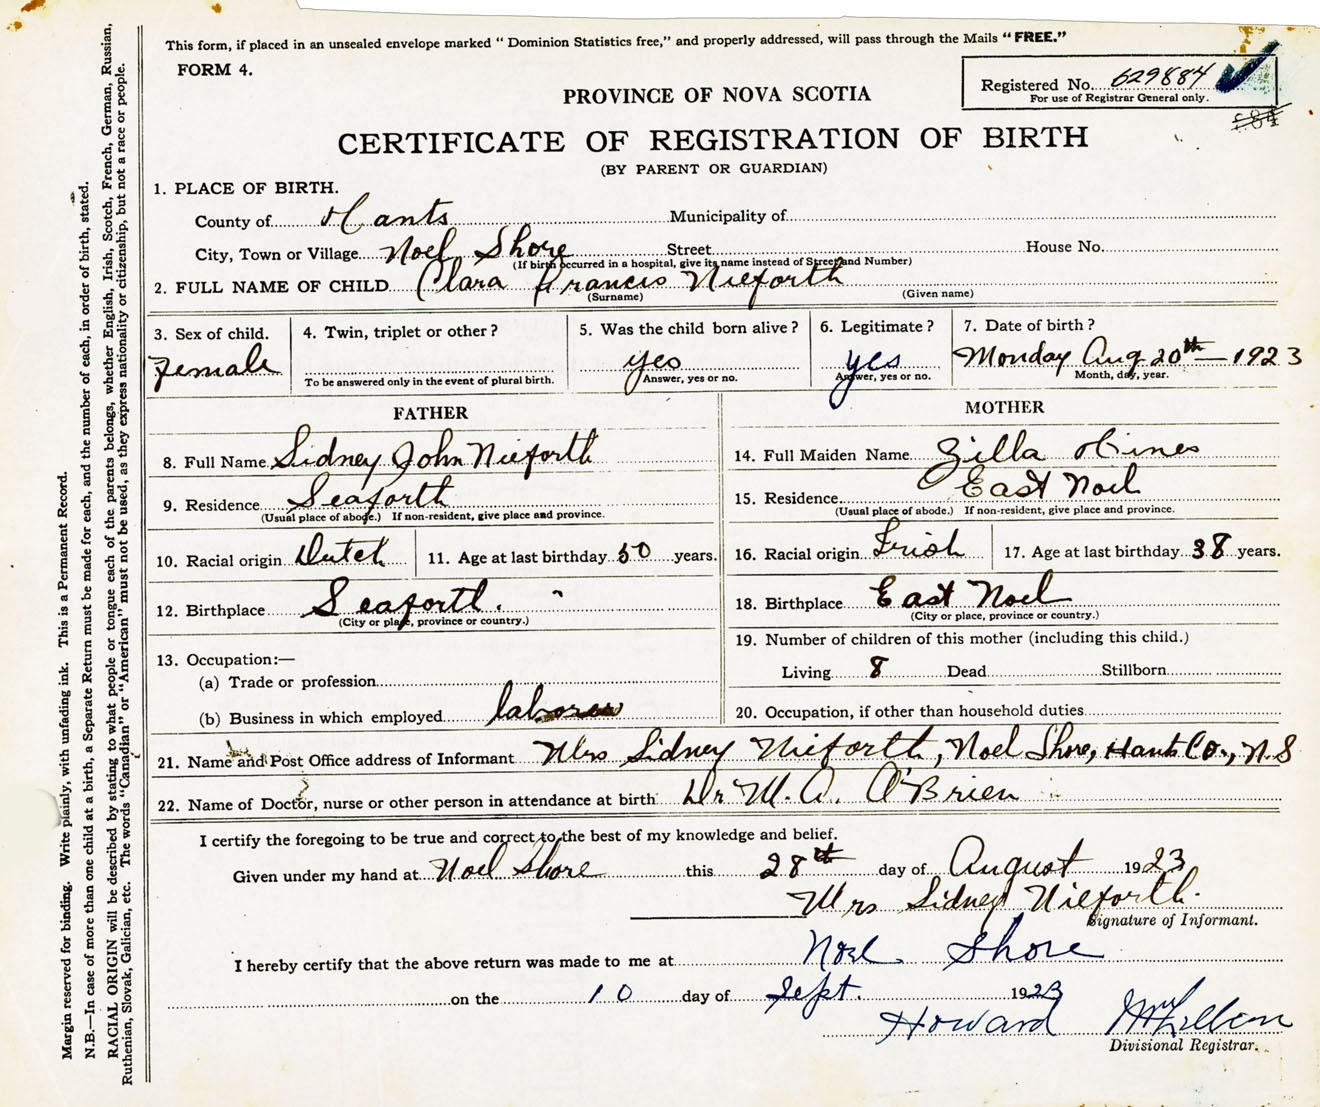 This form, if placed in an unsealed envelope marked " Dominion Statistics free," and properly addressed, will pass through the Mails " FREE."
FORM 4.
Registered No. 629884
For use of Registrar General only.
PROVINCE OF NOVA SCOTIA
CERTIFICATE OF REGISTRATION OF BIRTH
(BY PARENT OR GUARDIAN)
1. PLACE OF BIRTH.
County of Hants Municipality of
City, Town or Village Noel Shore Street House No.
(If birth occurred in a hospital, give its name instead of Street and Number)
2. FULL NAME OF CHILD Clara Francis Nieforth
(Surname) (Given name)
3. Sex of child. 4. Twin, triplet or other ? 5. Was the child born alive ? 6. Legitimate ? 7. Date of birth ?
Female yes yes Monday Aug 20th — 1923
To be answered only in the event of plural birth. Answer, yes or no. Answer, yes or no. Month, day, year.
FATHER MOTHER
8. Full Name Sidney John Nieforth 14. Full Maiden Name Zilla Hines
9. Residence Seaforth 15. Residence East Noel
(Usual place of abode.) If non-resident, give place and province. (Usual place of abode.) If non-resident, give place and province.
10. Racial origin Dutch 11. Age at last birthday 50 years. 16. Racial origin Irish 17. Age at last birthday 38 years.
12. Birthplace Seaforth. 18. Birthplace East Noel
(City or place, province or country.) (City or place, province or country.)
19. Number of children of this mother (including this child.)
13. Occupation:—
(a) Trade or profession Living 8 Dead Stillborn
(b) Business in which employed laborer 20. Occupation, if other than household duties
21. Name and Post Office address of Informant Mrs Sidney Nieforth, Noel Shore, Hants Co., N.S
22. Name of Doctor, nurse or other person in attendance at birth Dr M. A. O'Brien
I certify the foregoing to be true and correct to the best of my knowledge and belief.
Given under my hand at Noel Shore this 28th day of August 1923
Mrs Sidney Nieforth.
Signature of Informant.
I hereby certify that the above return was made to me at Noel Shore
on the 10 day of Sept. 1923
Howard
Divisional Registrar.
Margin reserved for binding. Write plainly, with unfading ink. This is a Permanent Record.
N.B.—In case of more than one child at a birth, a Separate Return must be made for each, and the number of each, in order of birth, stated.
RACIAL ORIGIN will be described by stating to what people or tongue each of the parents belongs, whether English, Irish, Scotch, French, German, Russian,
Ruthenian, Slovak, Galician, etc. The words "Canadian" or "American" must not be used, as they express nationality or citizenship, but not a race or people.